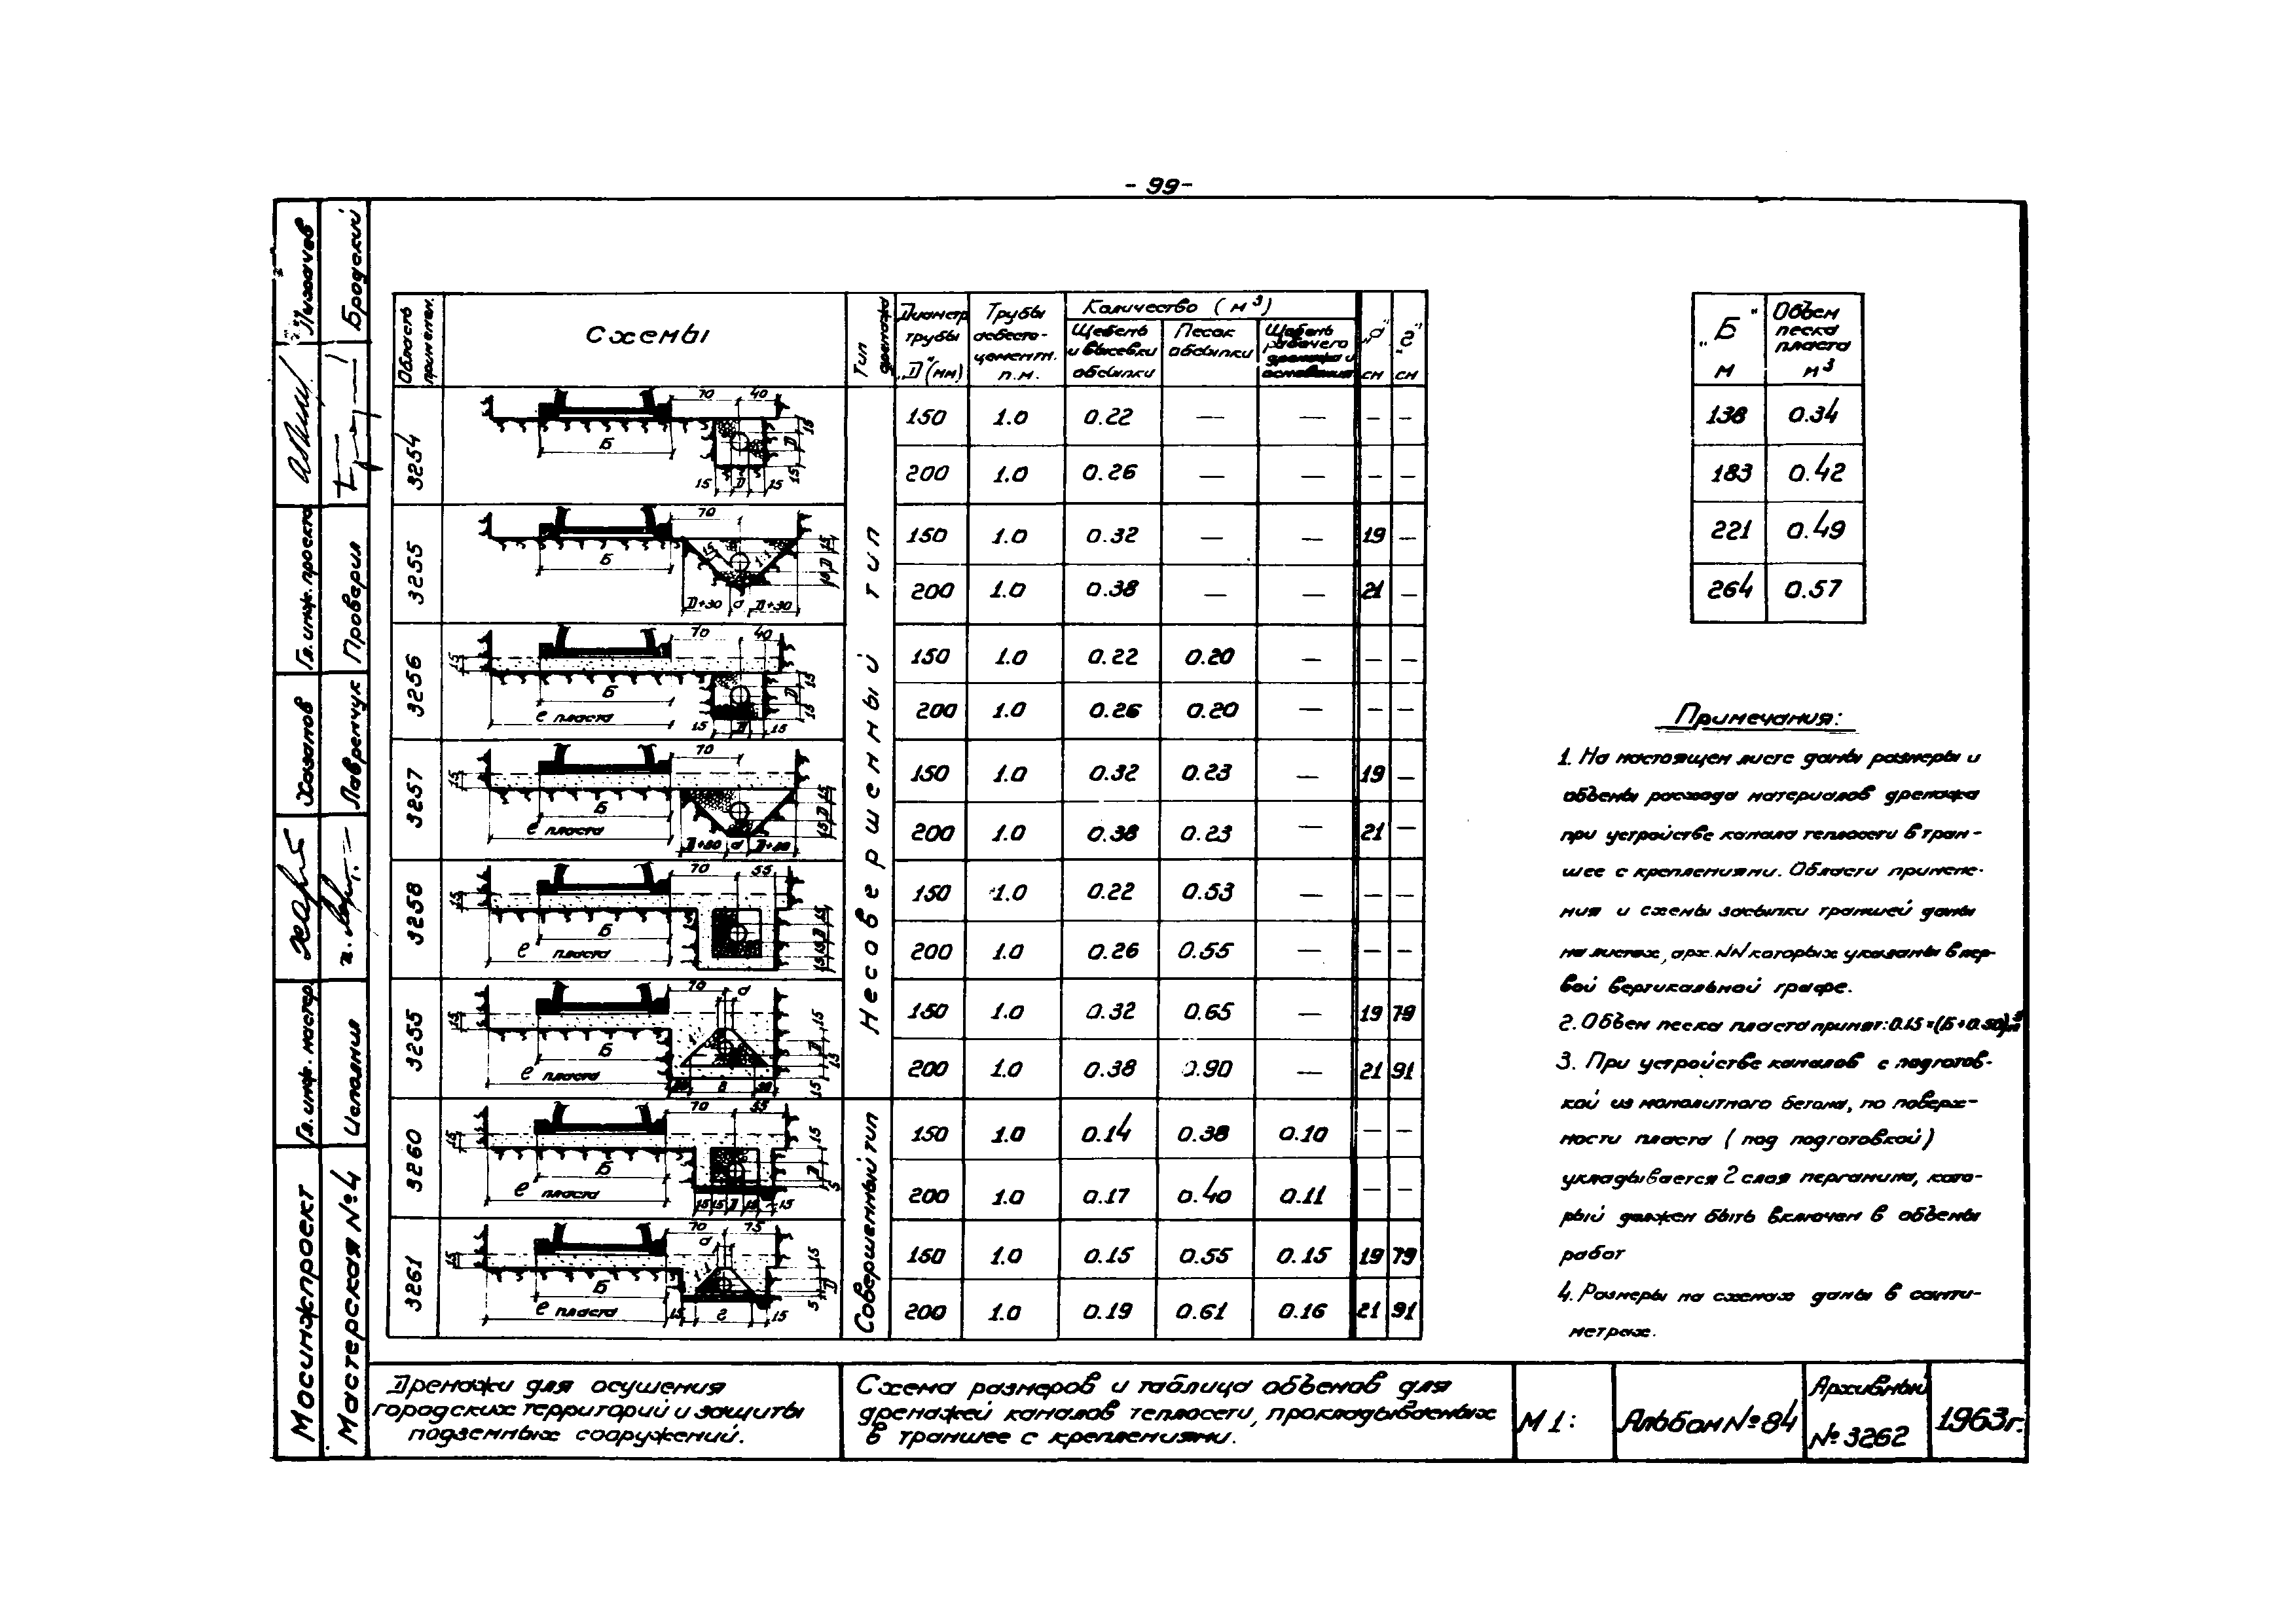 - 99 -
Область применен.
Схемы
Тип дренажа
Диаметр трубы „D" (мм)
Трубы асбесто-цементн. п.м.
Количество (м³)
Щебень и высевки обсыпки
Песок обсыпки
Щебень рабочего дренажа и основания
„а" см
„г" см
Несовершенный тип
3254 70 40 Б 15 D 15 15 D 15
150 1.0 0.22 — — — —
200 1.0 0.26 — — — —
3255 70 Б 15 15 D 15 D+30 а D+30
150 1.0 0.32 — — 19 —
200 1.0 0.38 — — 21 —
3256 15 70 40 Б е пласта 15 D 15 15 D 15
150 1.0 0.22 0.20 — — —
200 1.0 0.26 0.20 — — —
3257 15 70 Б е пласта 15 D 15 D+30 а D+30
150 1.0 0.32 0.23 — 19 —
200 1.0 0.38 0.23 — 21 —
3258 15 70 55 Б е пласта 15 D 15 15
150 1.0 0.22 0.53 — — —
200 1.0 0.26 0.55 — — —
3255 15 70 а Б е пласта 15 D 15 15
150 1.0 0.32 0.65 — 19 79
200 1.0 0.38 0.90 — 21 91
Совершенный тип
3260 15 70 55 Б е пласта 15 D 5 15 15 D 15 15
150 1.0 0.14 0.38 0.10 — —
200 1.0 0.17 0.40 0.11 — —
3261 15 70 75 а Б е пласта 15 г 15 15 D 5
150 1.0 0.15 0.55 0.15 19 79
200 1.0 0.19 0.61 0.16 21 91
„Б" м
Объем песка пласта м³
138 0.34
183 0.42
221 0.49
264 0.57
Примечания:
1. На настоящем листе даны размеры и
объемы расхода материалов дренажа
при устройстве канала теплосети в тран-
шее с креплениями. Области примене-
ния и схемы засыпки траншей даны
на листах, арх. NN которых указаны в пер-
вой вертикальной графе.
2. Объем песка пласта принят: 0.15×(Б+0.90) м³
3. При устройстве каналов с подготов-
кой из монолитного бетона, по поверх-
ности пласта (под подготовкой)
укладывается 2 слоя пергамина, кото-
рый должен быть включен в объемы
работ
4. Размеры на схемах даны в санти-
метрах.
Мосинжпроект
Мастерская №4
Гл. инж. мастер.
Исполнил
Хазанов
Лавренчук
Гл. инж. проекта
Проверил
Бродский
Дренажи для осушения
городских территорий и защиты
подземных сооружений.
Схема размеров и таблица объемов для
дренажей каналов теплосети, прокладываемых
в траншее с креплениями.
М 1:
Альбом № 84
Архивный
№ 3262
1963г.